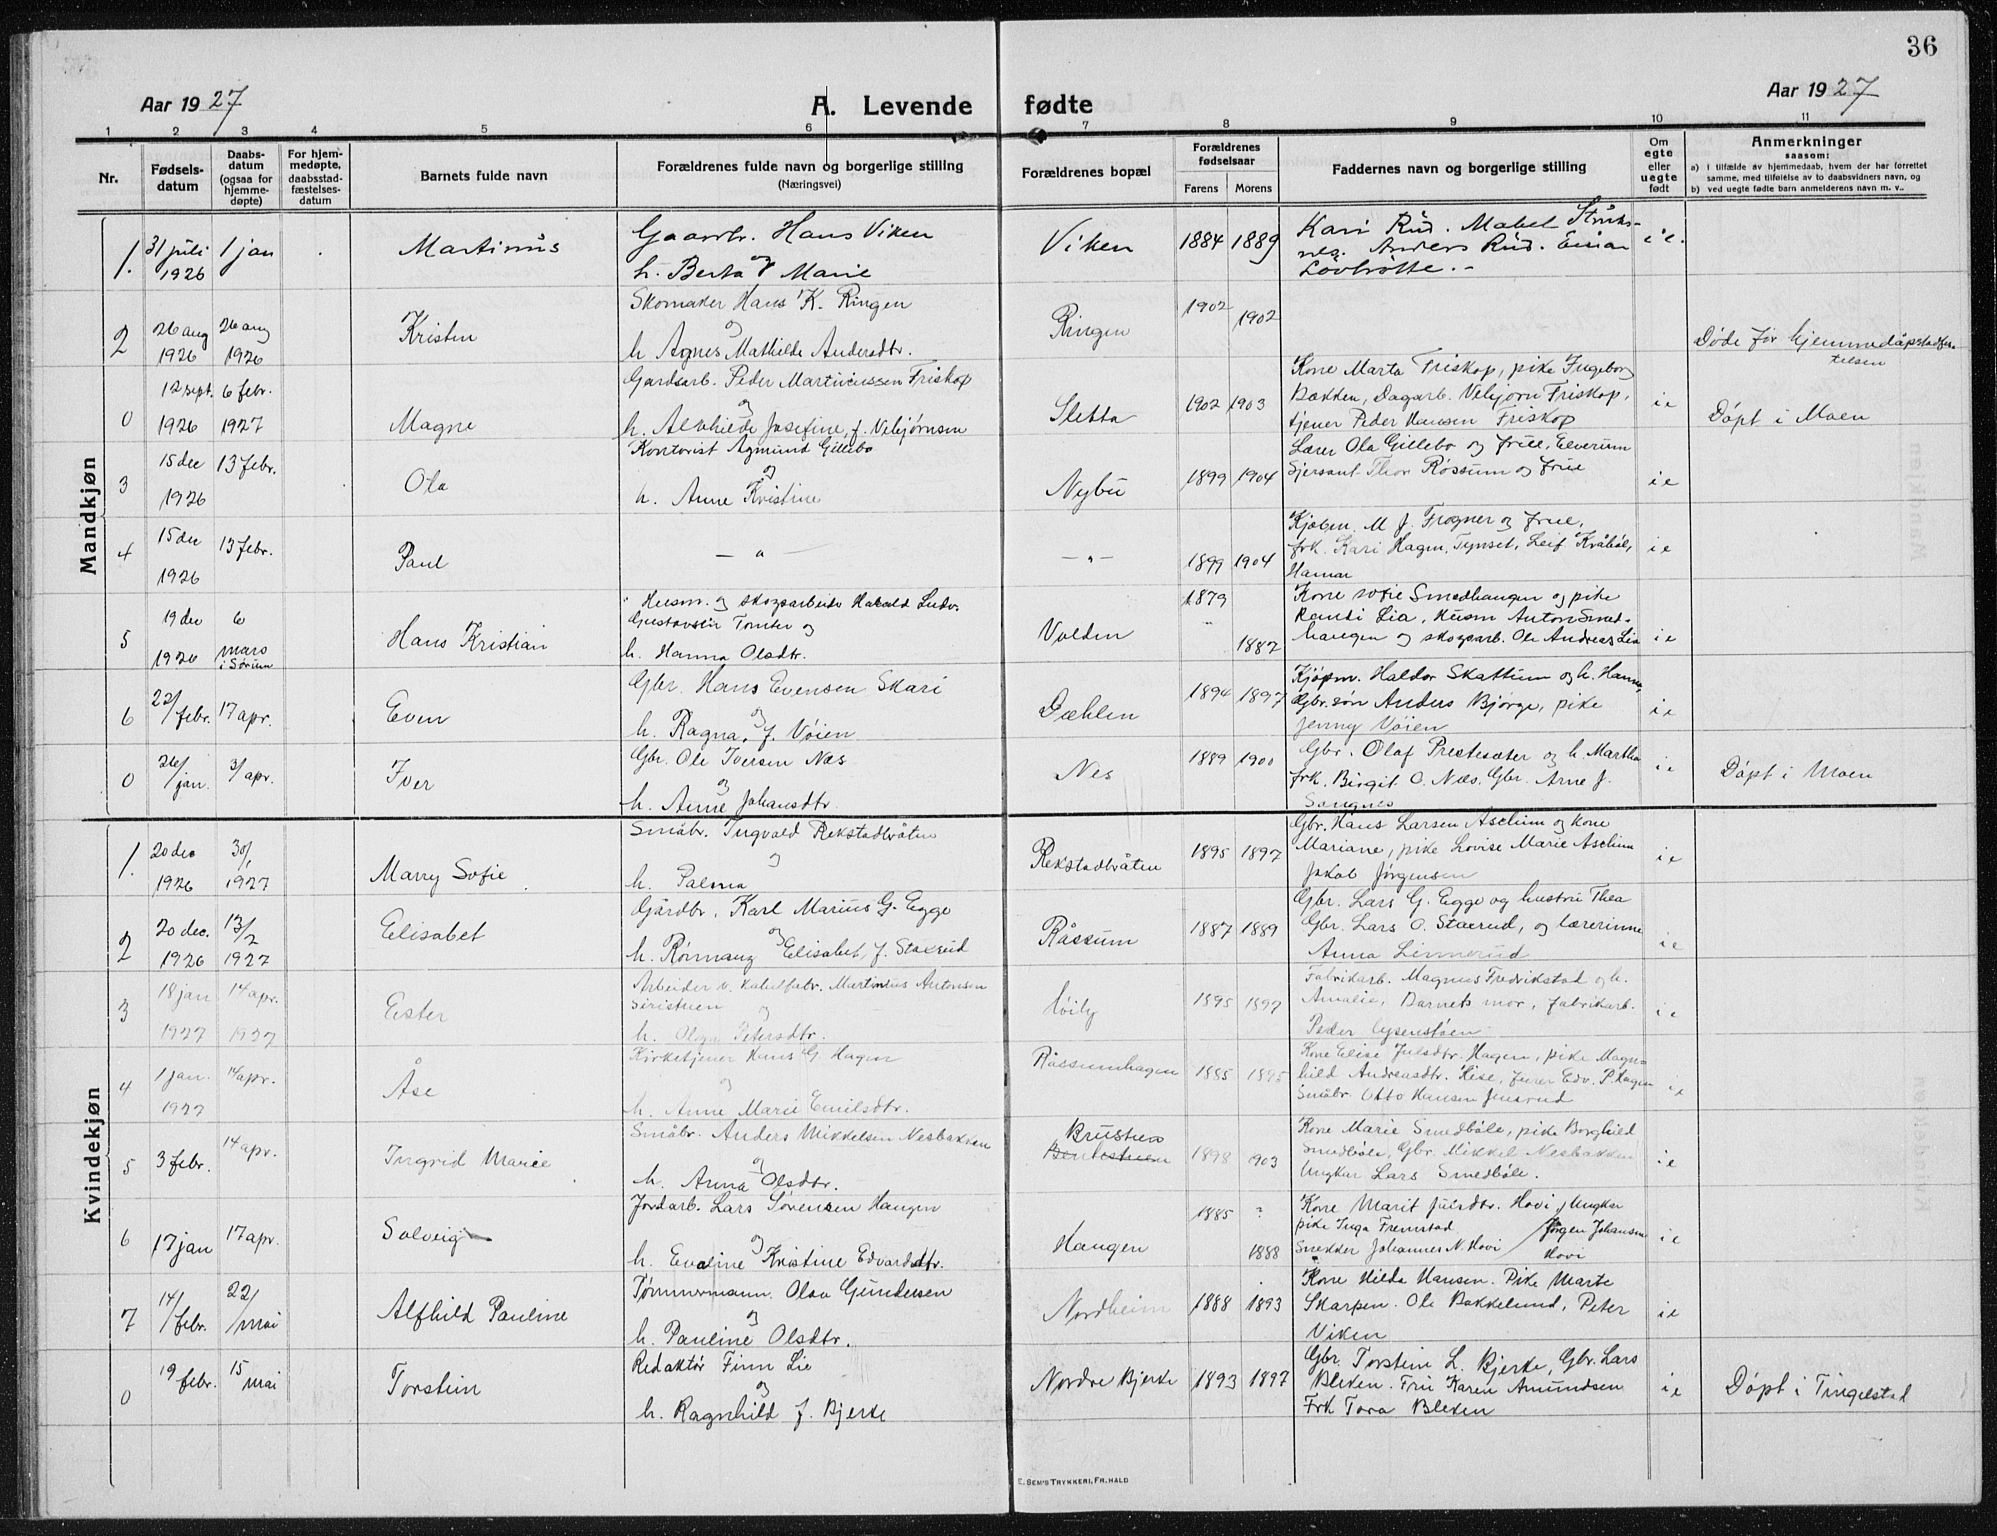 36
Aar 1927
A. Levende fødte
Aar 1927
1 2 3 4 5 6 7 8 9 10 11
Nr.
Fødsels-
datum
Daabs-
datum
(ogsaa for
hjemme-
døpte)
For hjem-
medøpte,
daabsstad-
fæstelses-
datum
Barnets fulde navn
Forældrenes fulde navn og borgerlige stilling
(Næringsvei)
Forældrenes bopæl
Forældrenes
fødselsaar
Farens Morens
Faddernes navn og borgerlige stilling
Om
egte
eller
uegte
født
Anmerkninger
saasom:
a) i tilfælde av hjemmedaab, hvem der har forrettet
samme, med tilføielse av to daabsvidners navn, og
b) ved uegte fødte barn anmelderens navn m. v.
Mandkjøn
1. 31 juli 1926 1 jan Martinus
Gaarbr. Hans Viken
og
h. Berta Marie
Viken 1884 1889
Kari Rud. Mabel
Anders Rud. Einar
i e.
2 26 aug 1926 26 aug 1926 Kristen
Skomaker Hans K. Ringen
og
h. Agnes Mathilde Andersdtr.
Ringen 1902 1902
Døde før hjemmedåpstadfes-
telsen
0 12 sept. 1926 6 febr. 1927 Magne
Gardsarb. Peder Martinussen Friskop
og
h. Alvhilde Josefine, f. Vebjørnsen
Sletta 1902 1903
Kone Marta Friskop, pike Ingeborg
Bækken, Dagarb. Vebjørn Friskop,
tjener Peder Hansen Friskop
i e
Døpt i Moen
3 15 dec 1926 13 febr. Ola
Kontorist Agmund Gillebo
og
h. Anne Kristine
Nybu 1899 1904
Lærer Ola Gillebo og frue, Elverum
Sjersant Thor Røssum og frue
i e
4 15 dec 1926 13 febr. Paul
— " —
— " — 1899 1904
Kjøbm. M J. Frogner og frue,
frk. Kari Hagen, Tynset, Leif Kråbøl,
Hamar
i e
5 19 dec 1926 6 mars i Sørum Hans Kristian
Husm. og skogsarbeider Harald Ludv.
Gustavsen Tomter og
h. Hanna Olsdtr.
Volden 1879 1887
Kone Sofie Smedhaugen og pike
Randi Lia, Husm Anton Smed-
haugen og skogsarb. Ole Andreas Lia
i e
6 22/ febr. 17 apr. Even
Gbr. Hans Evensen Skari
og
h. Ragna, f. Vøien
Dæhlen 1894 1897
Kjøpm. Haldor Skattum og h. Hanna,
Gbr.søn Anders Bjørge, pike
Jenny Vøien
i e
0 26/ jan. 3/ apr. Iver
Gbr. Ole Iversen Næs
og
h. Anne Johansdtr.
Nes 1889 1900
Gbr. Olaf Prestesæter og h. Martha
frk. Birgit O. Næs. Gbr. Arne J.
Sangnes
i e
Døpt i Moen
Kvindekjøn
1. 20 dec 1926 30/1 1927 Marry Sofie
Småbr. Ingvald Rekstadbråten
og
h. Palma
Rekstadbråten 1895 1897
Gbr. Hans Larsen Aschim og kone
Mariane, pike Lovise Marie Aschim
Jakob Jørgensen
i e
2 20 dec. 1926 13/2 1927 Elisabet
Gårdbr. Karl Marius G. Egge
og
h. Rønnaug Elisabet, f. Staxrud
Råssum 1887 1889
Gbr. Lars G. Egge og hustru Thea
Gbr. Lars O. Staxrud, og lærerinne
Anna Linnerud
i e
3 18 jan 1927 14 apr. 1927 Ester
Arbeider v. kabelfabr. Martinius Antonsen
og
h. Olga Petersdtr.
Høily 1895 1897
Fabrikarb. Magnus Fredrikstad og h.
Amalie, Barnets mor, fabrikarb.
Peder
i e
4 1 jan. 1927 14 apr. Åse
Kirketjener Hans G Hagen
og
h. Anne Marie Emilsdtr.
Råssumhagen 1885 1895
Kone Elise Julsdtr. Hagen, pike Magn-
hild Andreasdtr. Hise, furer Edv. P. Hagen
Småbr. Otto Hansen Jensrud
i e
5 3 febr. 14 apr. Ingrid Marie
Småbr. Anders Mikkelsen Nesbakken
og
h. Anna Olsdtr.
Brustuen
1898 1903
Kone Marie Smedbøle, pike Borghild
Smedbøle, Gbr. Mikkel Nesbakken
Ungkar Lars Smedbøle.
i e
6 17 jan 17 apr. Solveig
Jordarb. Lars Sørensen Haugen
og
h. Evaline Kristine Edvardsdtr.
Haugen 1885 ? 1888
Kone Marit Julsdtr. Hovi / Ungkar
pike Inga Fremstad / Jørgen Johansen
Snekker Johannes N. Hovi / Hovi
i e
7 14/ febr. 22/ mai Alfhild Pauline
Tømmermann. Olav Gundersen
og
h. Pauline Olsdtr.
Nordheim 1888 1893
Kone Hilda Hansen. Pike Marte
Skarpen. Ole Bakkelund, Peter
Viken
i e
0 19 febr. 15 mai Torstein
Redaktør Finn Lie
og
h. Ragnhild f. Bjerke
Nordre Bjerke 1893 1897
Gbr. Torstein L. Bjerke, Gbr. Lars
Bleken. Fru Karen Amundsen
Frk Tora Bleken
i e
Døpt i Tingelstad
E. SEM'S TRYKKERI, FR.HALD